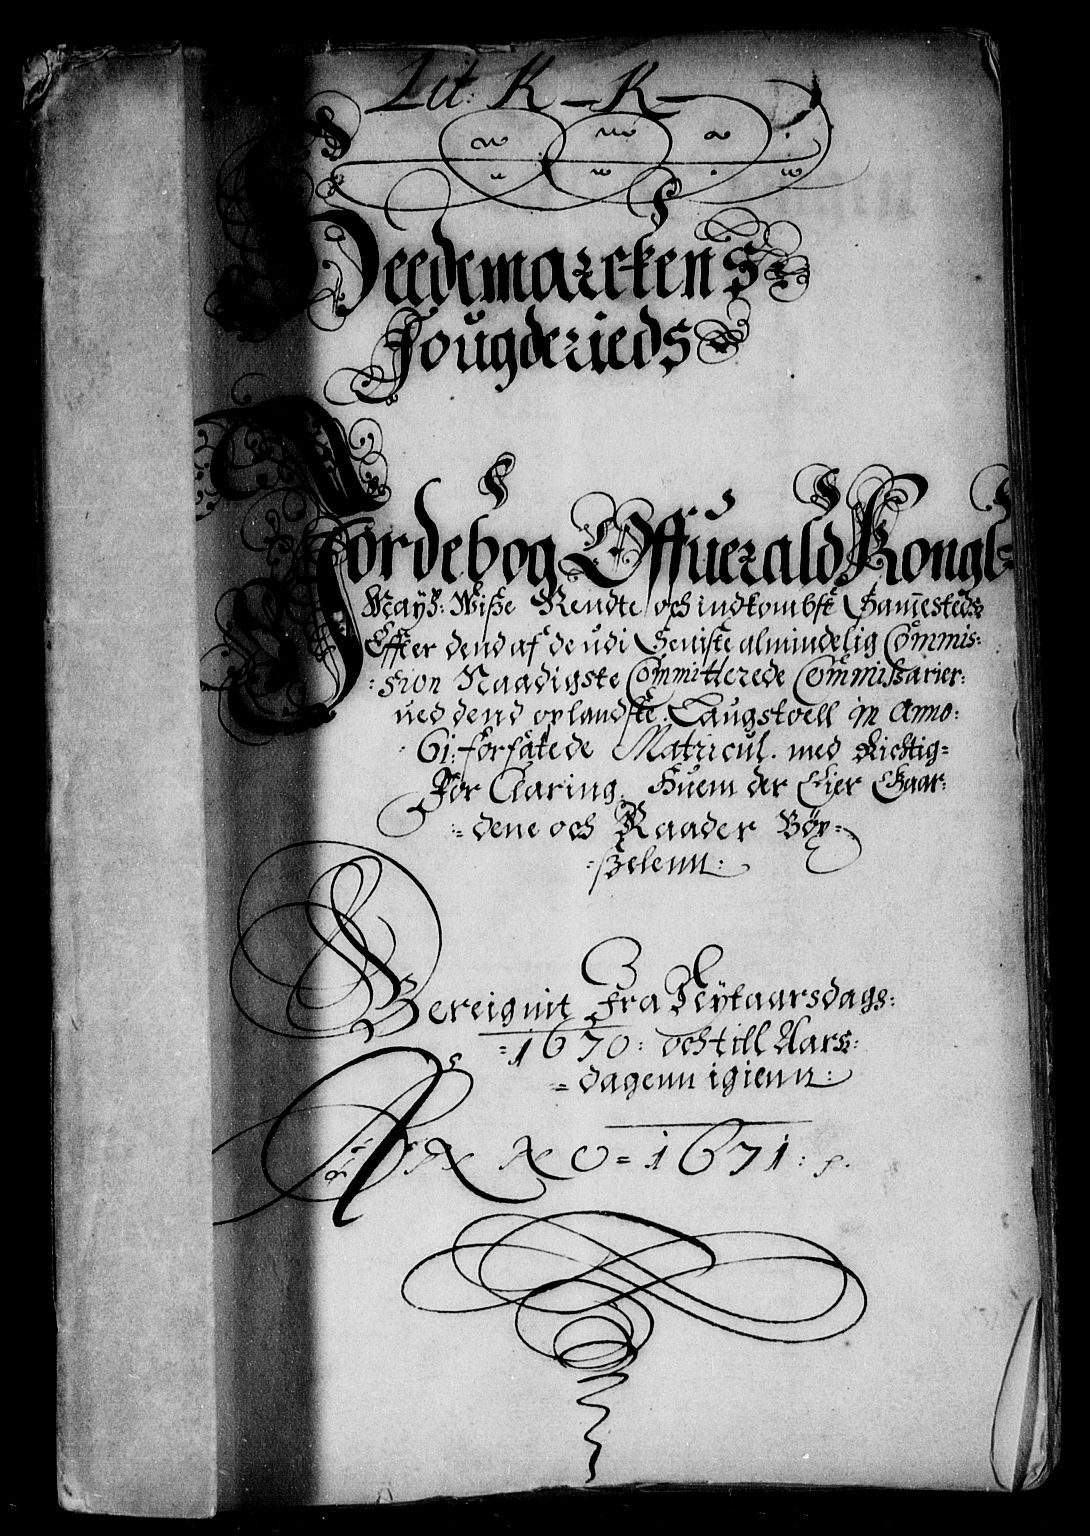 Lit: K - K -
Heedemarckens
Fougderieds
Jordebog Offuerald Kongl=
Mayß: Wiße Rendte och indkombst Sammesteds
Effter dend af de udi Seniste almindelig Commis=
sion Naadigste Committerede Commißarier:
ued dend oplandske Laugstoell in Anno:
61: forfatede Matricul. med Richtig=
for Claring, Huem der Eier Gaar=
dene och Raader Böx=
=ßelenn:
Bereignit fra Nytaarsdags:
=1670: och till Aars:
=dagenn igienn:
ANNO=1671: